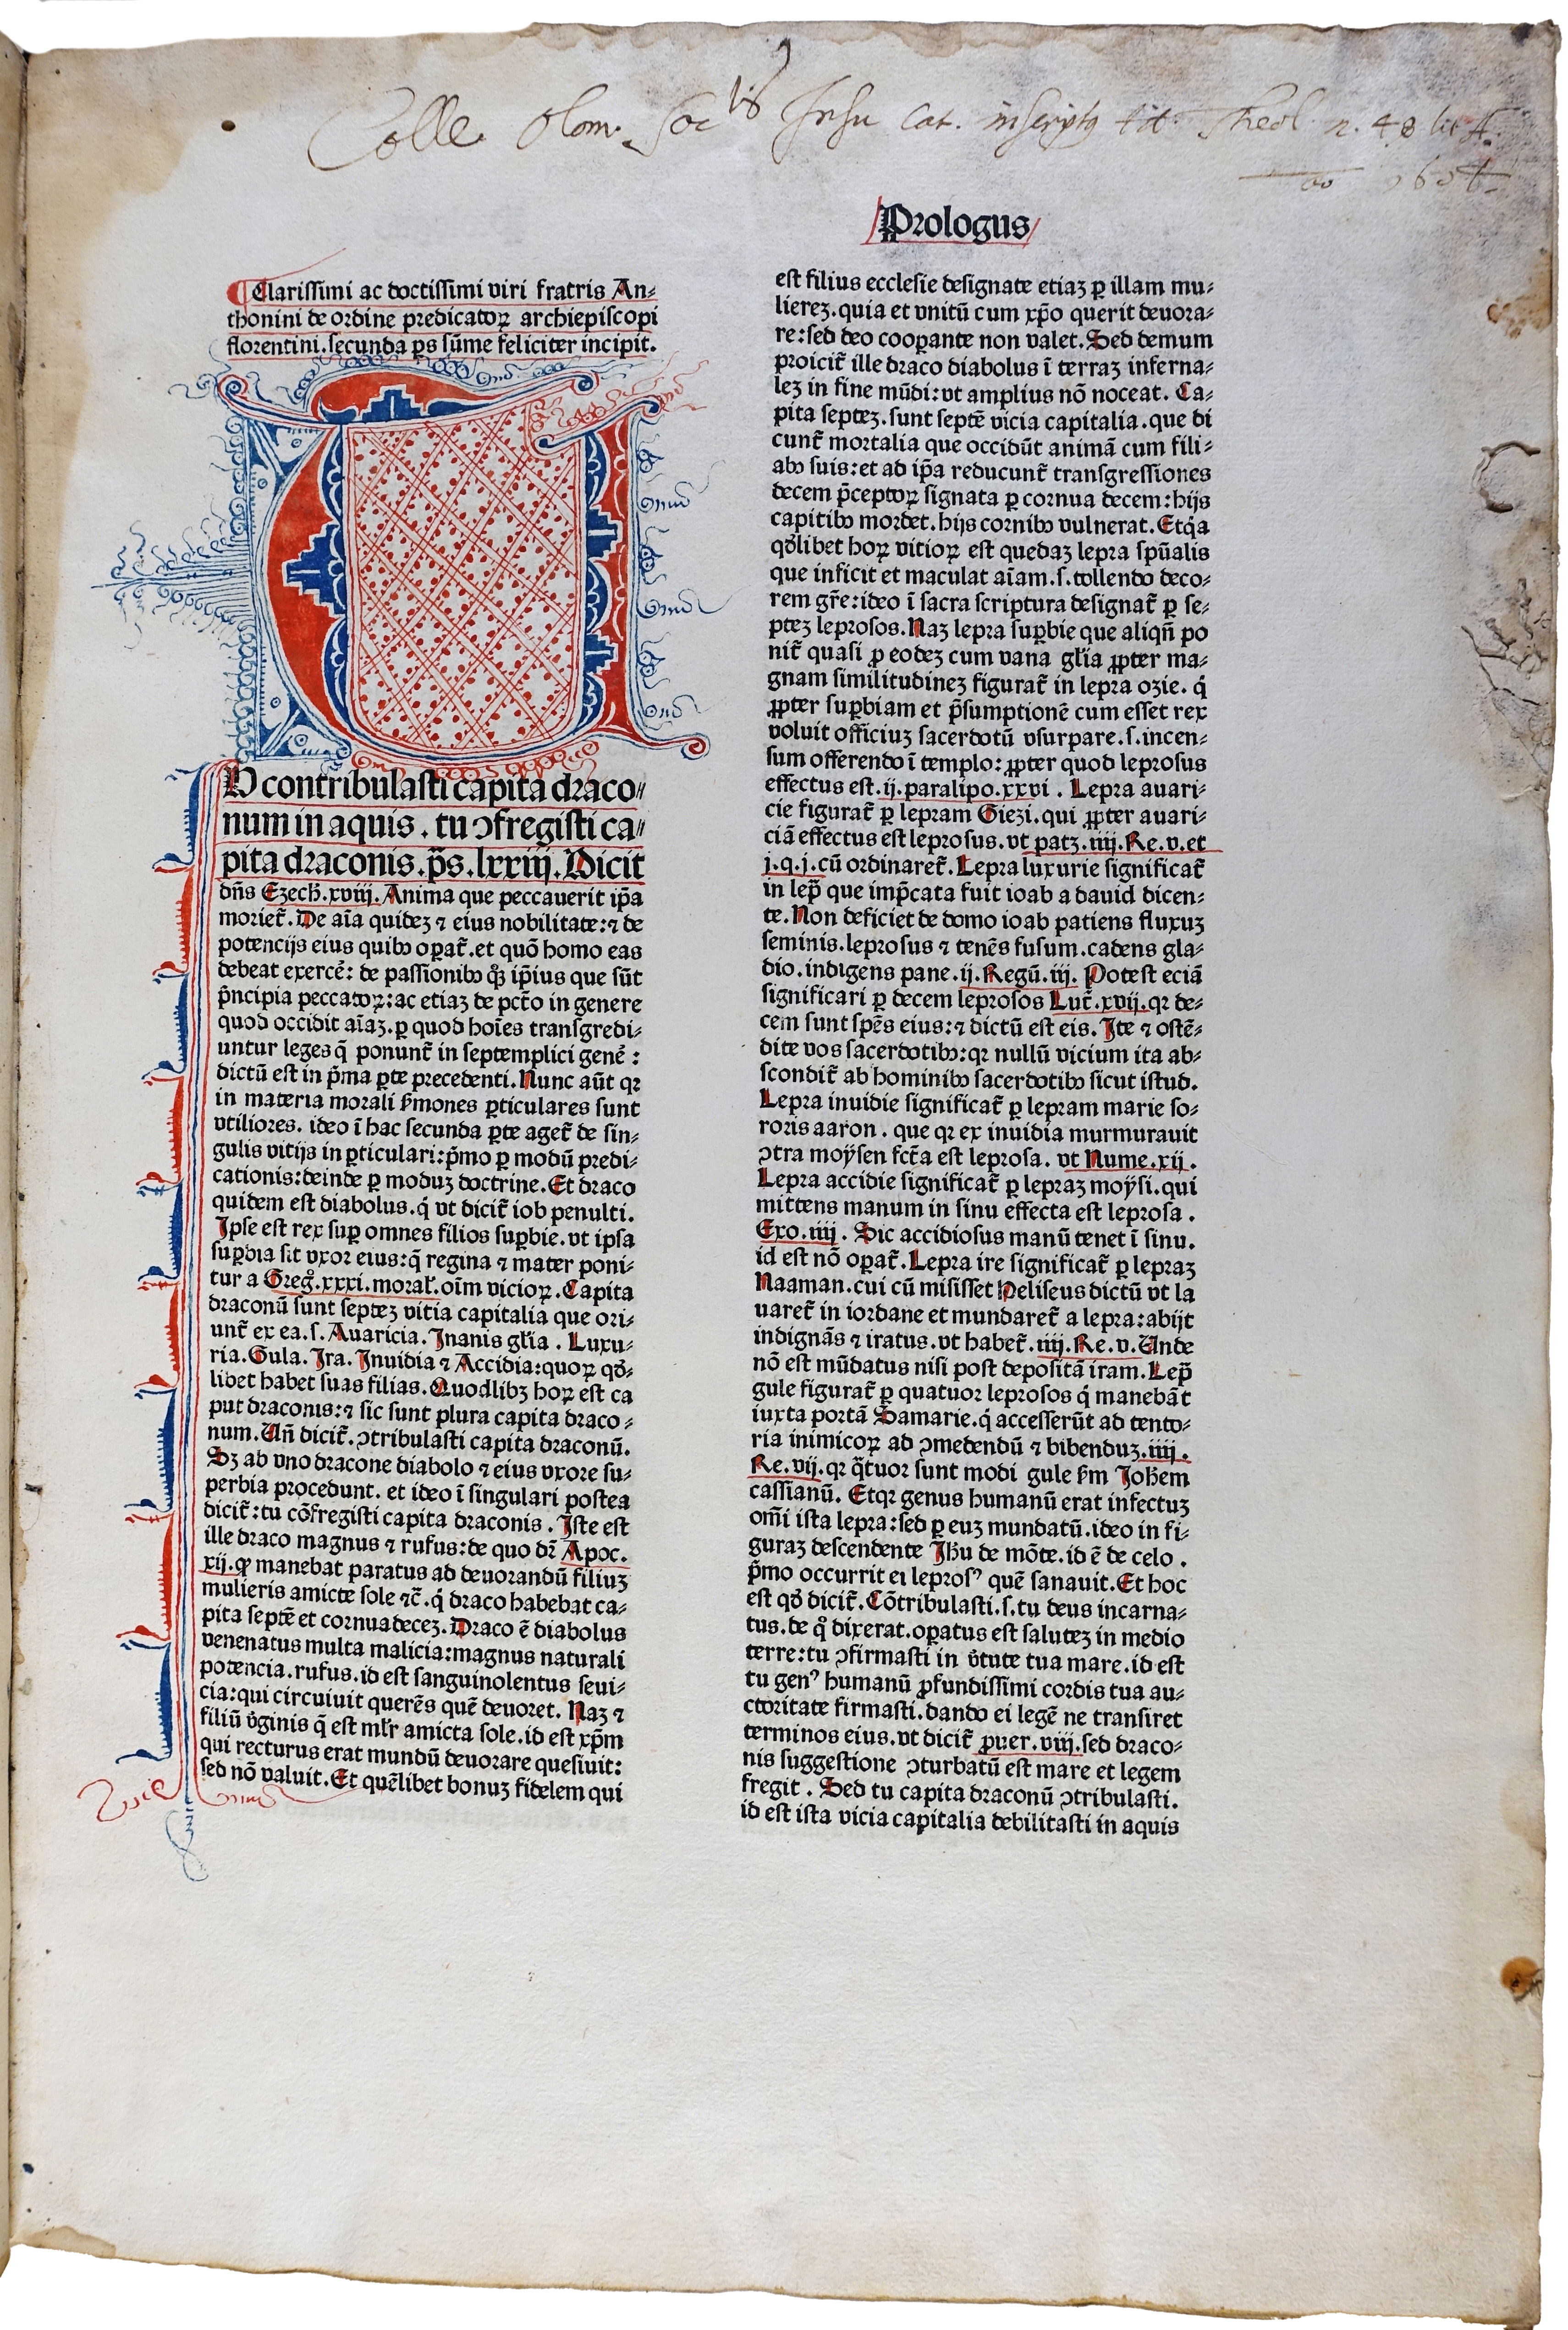 Colle. Olom. Soc^tis Jesu Cat. inscriptq tit. Theol. n. 48 lit A.
Prologus
Clarissimi ac doctissimi viri fratris An⸗
thonini de ordine predicatoꝝ archiepiscopi
florentini. secunda ps sūme feliciter incipit.
TU contribulasti capita draco⸗
num in aquis. tu ↄfregisti ca⸗
pita draconis. p̄s. lxxiij. Dicit
dn̄s Ezech. xviij. Anima que peccauerit ip̄a
moriet̄. De aīa quideꝫ ⁊ eius nobilitate: ⁊ de
potencijs eius quibꝰ oꝑat̄. et quō homo eas
debeat exercē: de passionibꝰ qꝫ ip̄ius que sūt
p̄ncipia peccatoꝝ: ac etiaꝫ de pct̄o in genere
quod occidit aīaꝫ. ꝑ quod hoīes transgredi⸗
untur leges q̄ ponunt̄ in septemplici genē:
dictū est in p̄ma ꝑte precedenti. Nunc aūt qꝛ
in materia morali s̄mones ꝑticulares sunt
vtiliores. ideo ī hac secunda ꝑte aget̄ de sin⸗
gulis vitijs in ꝑticulari: p̄mo ꝑ modū predi⸗
cationis: deinde ꝑ moduꝫ doctrine. Et draco
quidem est diabolus. q̇ vt dicit̄ iob penulti.
Ipse est rex suꝑ omnes filios suꝑbie. vt ipsa
suꝑbia sit vxor eius: q̄ regina ⁊ mater poni⸗
tur a Greg̊. xxxi. moral̓. oīm vicioꝝ. Capita
draconū sunt septeꝫ vitia capitalia que ori⸗
unt̄ ex ea. s. Auaricia. Inanis gl̓ia. Luxu⸗
ria. Gula. Ira. Inuidia ⁊ Accidia: quoꝝ qd̓⸗
libet habet suas filias. Quodlibꝫ hoꝝ est ca
put draconis: ⁊ sic sunt plura capita draco⸗
num. Un̄ dicit̄. ↄtribulasti capita draconū.
Sꝫ ab vno dracone diabolo ⁊ eius vxore su⸗
perbia procedunt. et ideo ī singulari postea
dicit̄: tu cōfregisti capita draconis. Iste est
ille draco magnus ⁊ rufus: de quo dr̄ Apoc.
xij. ꝙ manebat paratus ad deuorandū filiuꝫ
mulieris amicte sole ⁊c̄. q̇ draco habebat ca⸗
pita septē et cornua deceꝫ. Draco ē diabolus
venenatus multa malicia: magnus naturali
potencia. rufus. id est sanguinolentus seui⸗
cia: qui circuiuit querēs quē deuoret. Naꝫ ⁊
filiū v̓ginis q̄ est ml̓r amicta sole. id est xp̄m
qui recturus erat mundū deuorare quesiuit:
sed nō valuit. Et quēlibet bonuꝫ fidelem qui
est filius ecclesie designate etiaꝫ ꝑ illam mu⸗
liereꝫ. quia et vnitū cum xp̄o querit deuora⸗
re: sed deo cooꝑante non valet. Sed demum
proicit̄ ille draco diabolus ī terraꝫ inferna⸗
leꝫ in fine mūdi: vt amplius nō noceat. Ca⸗
pita septeꝫ. sunt septē vicia capitalia. que di
cunt̄ mortalia que occidūt animā cum fili⸗
abꝰ suis: et ad ip̄a reducunt̄ transgressiones
decem p̄ceptoꝝ signata ꝑ cornua decem: hijs
capitibꝰ mordet. hijs cornibꝰ vulnerat. Etq̇a
qd̓libet hoꝝ vitioꝝ est quedaꝫ lepra spūalis
que inficit et maculat aīam. s. tollendo deco⸗
rem gr̄e: ideo ī sacra scriptura designat̄ ꝑ se⸗
pteꝫ leprosos. Naꝫ lepra suꝑbie que aliqn̄ po
nit̄ quasi ꝓ eodeꝫ cum vana gl̓ia ꝓpter ma⸗
gnam similitudineꝫ figurat̄ in lepra ozie. q̇
ꝓpter suꝑbiam et p̄sumptionē cum esset rex
voluit officiuꝫ sacerdotū vsurpare. s. incen⸗
sum offerendo ī templo: ꝓpter quod leprosus
effectus est. ij. paralipo. xxvi. Lepra auari⸗
cie figurat̄ ꝑ lepram Giezi. qui ꝓpter auari⸗
ciā effectus est leprosus. vt patꝫ. iiij. Re. v. et
j. q. j. cū ordinaret̄. Lepra luxurie significat̄
in lep̄ que imp̄cata fuit ioab a dauid dicen⸗
te. Non deficiet de domo ioab patiens fluxuꝫ
seminis. leprosus ⁊ tenēs fusum. cadens gla⸗
dio. indigens pane. ij. Regū. iij. Potest eciā
significari ꝑ decem leprosos Luc̄. xvij. qꝛ de⸗
cem sunt sp̄es eius: ⁊ dictū est eis. Ite ⁊ ostē⸗
dite vos sacerdotibꝰ: qꝛ nullū vicium ita ab⸗
scondit̄ ab hominibꝰ sacerdotibꝰ sicut istud.
Lepra inuidie significat̄ ꝑ lepram marie so⸗
roris aaron. que qꝛ ex inuidia murmurauit
ↄtra moÿsen fct̄a est leprosa. vt Nume. xij.
Lepra accidie significat̄ ꝑ lepraꝫ moÿsi. qui
mittens manum in sinu effecta est leprosa.
Exo. iiij. Sic accidiosus manū tenet ī sinu.
id est nō oꝑat̄. Lepra ire significat̄ ꝑ lepraꝫ
Naaman. cui cū misisset Heliseus dictū vt la
uaret̄ in iordane et mundaret̄ a lepra: abijt
indignās ⁊ iratus. vt habet̄. iiij. Re. v. Unde
nō est mūdatus nisi post depositā iram. Lep̄
gule figurat̄ ꝑ quatuor leprosos q̇ manebāt
iuxta portā Samarie. q̇ accesserūt ad tento⸗
ria inimicoꝝ ad ↄmedendū ⁊ bibenduꝫ. iiij.
Re. vij. qꝛ q̄tuor sunt modi gule s̄m Joh̄em
cassianū. Etqꝛ genus humanū erat infectuꝫ
om̄i ista lepra: sed ꝑ euꝫ mundatū. ideo in fi⸗
guraꝫ descendente Ih̄u de mōte. id ē de celo.
p̄mo occurrit ei leprosꝰ quē sanauit. Et hoc
est qd̓ dicit̄. Cōtribulasti. s. tu deus incarna⸗
tus. de q̊ dixerat. oꝑatus est saluteꝫ in medio
terre: tu ↄfirmasti in v̓tute tua mare. id est
tu genꝰ humanū ꝓfundissimi cordis tua au⸗
ctoritate firmasti. dando ei legē ne transiret
terminos eius. vt dicit̄ ꝓuer. viij. sed draco⸗
nis suggestione ↄturbatū est mare et legem
fregit. Sed tu capita draconū ↄtribulasti.
id est ista vicia capitalia debilitasti in aquis